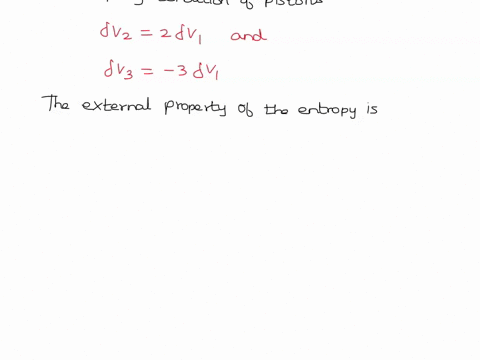 of pistons
δV₂ = 2 δV₁ and
δV₃ = -3 δV₁
The external property of the entropy is